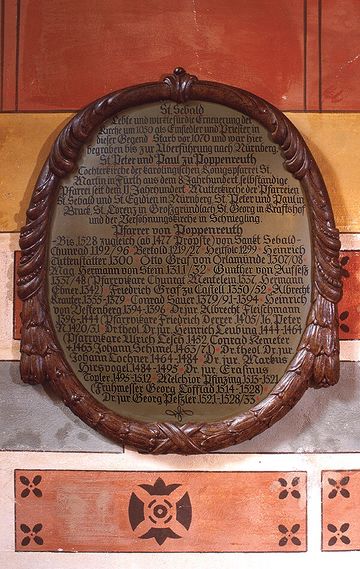 St Sebald
Lebte und wirkte für die Erneuerung der
Kirche um 1050 als Einsiedler und Priester in
dieser Gegend Starb vor 1070 und war hier
begraben bis zur Überführung nach Nürnberg.
St Peter und Paul zu Poppenreuth
Tochterkirche der karolingischen Königspfarrei St.
Martin in Fürth aus dem 8 Jahrhundert selbständige
Pfarrei seit dem 11 Jahrhundert Mutterkirche der Pfarreien
St Sebald und St Egidien in Nürnberg St Peter und Paul in
Bruck St Lorenz in Großgründlach St Georg in Kraftshof
und der Versöhnungskirche in Schniegling
Pfarrer von Poppenreuth
Bis 1528 zugleich (ab 1477 Pröpste) von Sankt Sebald-
Chunrad 1192/96 Bertold 1219/27 Heinrich
1300 Otto Graf von Orlamünde 1307/08
Mag Hermann von Stein 1311/32 Gunther von Aufseß
1337/48 (Pfarrvikare Chunrad 1337 Hermann
1342) Friedrich Graf zu Castell 1350/52 Albrecht
Krauter 1355-1379 Conrad Sauer 1379/91-1394 Heinrich
von Vestenberg 1394-1396 Dr jur Albrecht Fleischmann
1396-1444 (Pfarrvikare Friedrich Derrer 1405 Is Peter
N 1420/31) Dr theol Dr jur Heinrich Leubing 1444-1464
(Pfarrvikare Ulrich 1452 Conrad
-1463 Johann 1463/?) Dr theol Dr jur
Johann Lochner 1464-1484 Dr jur Markus
Hirsvogel 1484-1495 Dr jur Erasmus
Topler 1495-1512 Melchior Pfinzing 1513-1521
(Frühmesser Georg 1514-1528)
Dr jur Georg Peßler 1521-1528/33